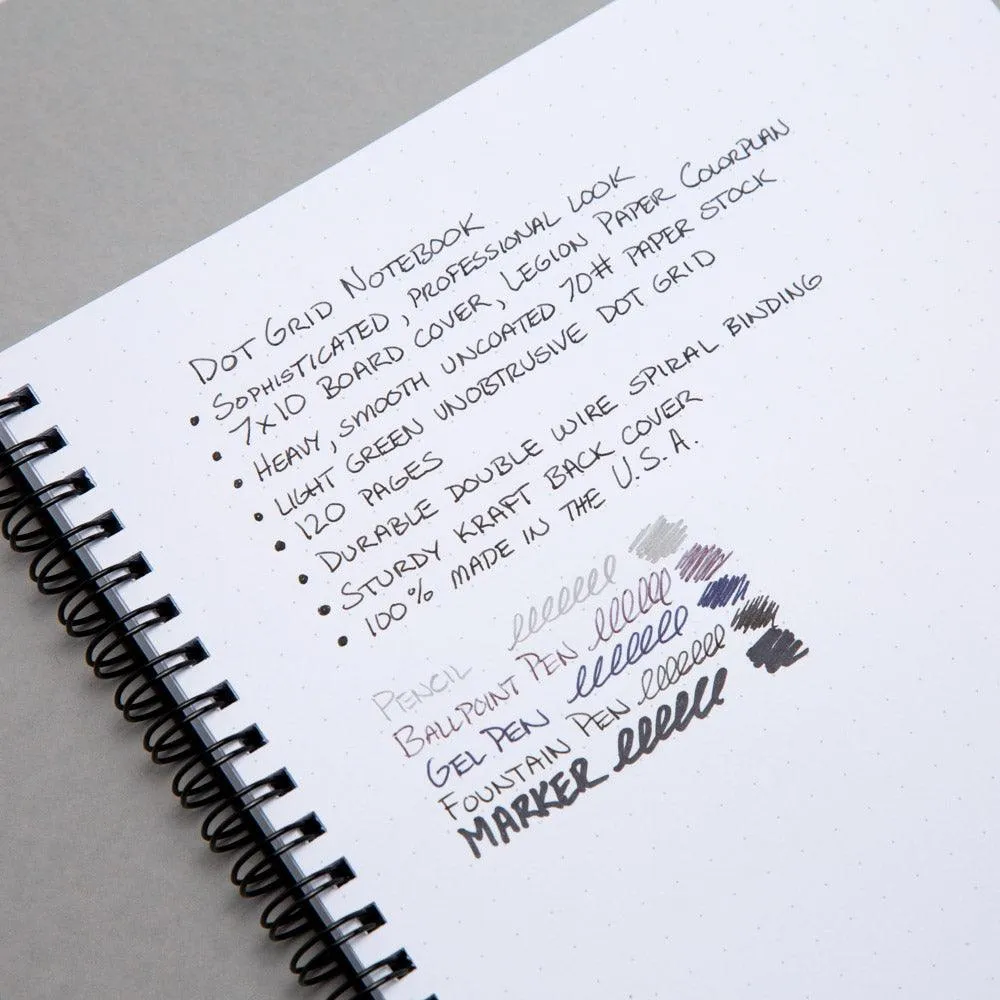 Dot Grid Notebook
• Sophisticated, professional look
• 7x10 Board cover, Legion Paper ColorPlan
• Heavy, smooth uncoated 70# paper stock
• Light green unobtrusive dot grid
• 120 pages
• Durable double wire spiral binding
• Sturdy kraft back cover
• 100% made in the U.S.A.
Pencil
Ballpoint Pen
Gel Pen
Fountain Pen
MARKER